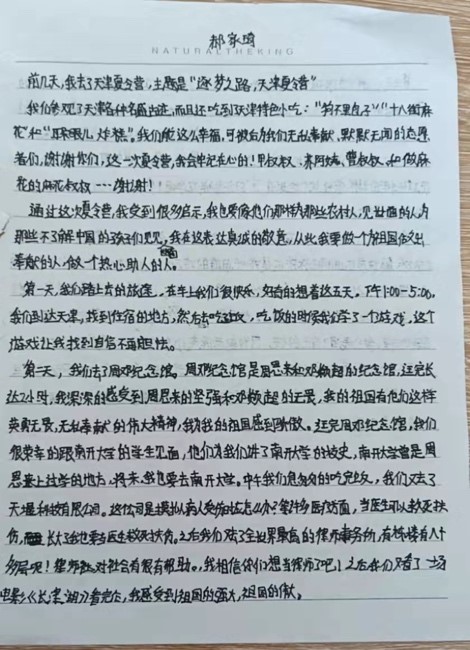 郝家琦
NATURALTHEKING
前几天,我去了天津夏令营,主题是“逐梦之路,天津夏令营”
我们参观了天津各种名胜古迹,而且还吃到天津特色小吃:“狗不里包子”“十八街麻
花”和“耳眼儿炸糕”。我们能这么幸福,可都是因为我们无私奉献,默默无闻的志愿
者们,谢谢你们,这一次夏令营,我会牢记在心的!甲叔叔、阿姨、曹叔叔、和做麻
花的麻花叔叔……谢谢!
通过这次夏令营,我受到很多启示,我也要像他们那样为那些农村人,见世面的人,为
那些不了解中国的孩子们见见,我在这表达真诚的敬意,从此我要做个为祖国做出
奉献的人,做一个热心助人的人。
第一天,我们踏上去的旅途,在车上我们很快乐,好奇的想着这五天。下午1:00-5:00,
我们到达天津,找到住宿的地方,然后去吃饭,吃饭的时候我们学了一个游戏,这个
游戏让我找到自信不再胆怯。
第二天,我们去了周邓纪念馆。周邓纪念馆是周恩来和邓颖超的纪念馆,逛完长
达2小时,我深深的感受到周恩来的坚强和邓颖超的无畏,我的祖国有他们这样
英勇无畏,无私奉献的伟大精神,我为我的祖国感到骄傲。逛完周邓纪念馆,我们
很荣幸的跟南开大学的学生见面,他们为我们讲了南开大学的校史,南开大学曾是周
恩来上过学的地方,将来,我也要去南开大学。中午我们急匆匆的吃完饭,我们又去了
天堰科技有限公司。这公司是模拟病人受伤该怎么办?等许多医疗方面,当医生可以救死扶
伤,长大我也要当医生救死扶伤。之后我们又去了全世界最高的律师事务所,有栋楼有八十
多层呢!律师对社会有很有帮助。,我相信你们想当律师了吧!之后我们又看了一场
电影《长津湖》看完后,我感受到祖国的强大,祖国的伟大。